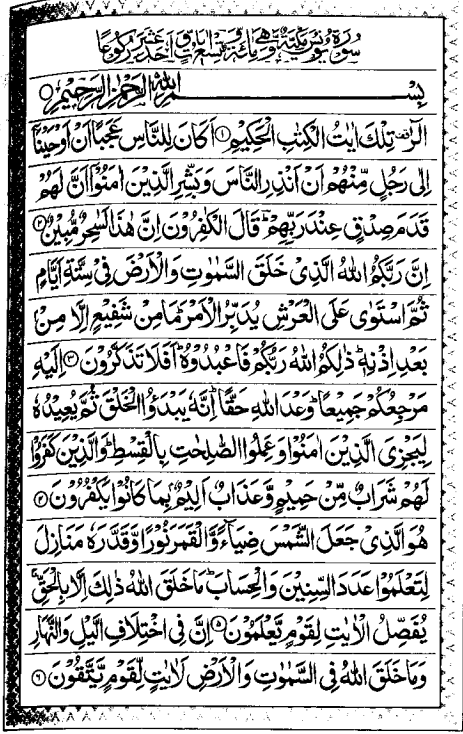 سُوْرَةُ يُوْنُسَ مَكِّيَّةٌ وَّهِيَ مِائَةٌ وَّتِسْعُ اٰيَاتٍ وَّاَحَدَ عَشَرَ رُكُوْعًا
بِسْمِ اللّٰهِ الرَّحْمٰنِ الرَّحِيْمِ ۝
الٓرٰ تِلْكَ اٰيٰتُ الْكِتٰبِ الْحَكِيْمِ ۝۱ اَكَانَ لِلنَّاسِ عَجَبًا اَنْ اَوْحَيْنَاۤ
اِلٰى رَجُلٍ مِّنْهُمْ اَنْ اَنْذِرِ النَّاسَ وَبَشِّرِ الَّذِيْنَ اٰمَنُوْۤا اَنَّ لَهُمْ
قَدَمَ صِدْقٍ عِنْدَ رَبِّهِمْ ؕ قَالَ الْكٰفِرُوْنَ اِنَّ هٰذَا لَسٰحِرٌ مُّبِيْنٌ ۝۲
اِنَّ رَبَّكُمُ اللّٰهُ الَّذِيْ خَلَقَ السَّمٰوٰتِ وَالْاَرْضَ فِيْ سِتَّةِ اَيَّامٍ
ثُمَّ اسْتَوٰى عَلَى الْعَرْشِ يُدَبِّرُ الْاَمْرَ ؕ مَا مِنْ شَفِيْعٍ اِلَّا مِنْۢ
بَعْدِ اِذْنِهٖ ؕ ذٰلِكُمُ اللّٰهُ رَبُّكُمْ فَاعْبُدُوْهُ ؕ اَفَلَا تَذَكَّرُوْنَ ۝۳ اِلَيْهِ
مَرْجِعُكُمْ جَمِيْعًا ؕ وَعْدَ اللّٰهِ حَقًّا ؕ اِنَّهٗ يَبْدَؤُا الْخَلْقَ ثُمَّ يُعِيْدُهٗ
لِيَجْزِيَ الَّذِيْنَ اٰمَنُوْا وَعَمِلُوا الصّٰلِحٰتِ بِالْقِسْطِ ؕ وَالَّذِيْنَ كَفَرُوْا
لَهُمْ شَرَابٌ مِّنْ حَمِيْمٍ وَّعَذَابٌ اَلِيْمٌۢ بِمَا كَانُوْا يَكْفُرُوْنَ ۝۴
هُوَ الَّذِيْ جَعَلَ الشَّمْسَ ضِيَآءً وَّالْقَمَرَ نُوْرًا وَّقَدَّرَهٗ مَنَازِلَ
لِتَعْلَمُوْا عَدَدَ السِّنِيْنَ وَالْحِسَابَ ؕ مَا خَلَقَ اللّٰهُ ذٰلِكَ اِلَّا بِالْحَقِّ ۚ
يُفَصِّلُ الْاٰيٰتِ لِقَوْمٍ يَّعْلَمُوْنَ ۝۵ اِنَّ فِي اخْتِلَافِ الَّيْلِ وَالنَّهَارِ
وَمَا خَلَقَ اللّٰهُ فِي السَّمٰوٰتِ وَالْاَرْضِ لَاٰيٰتٍ لِّقَوْمٍ يَّتَّقُوْنَ ۝۶